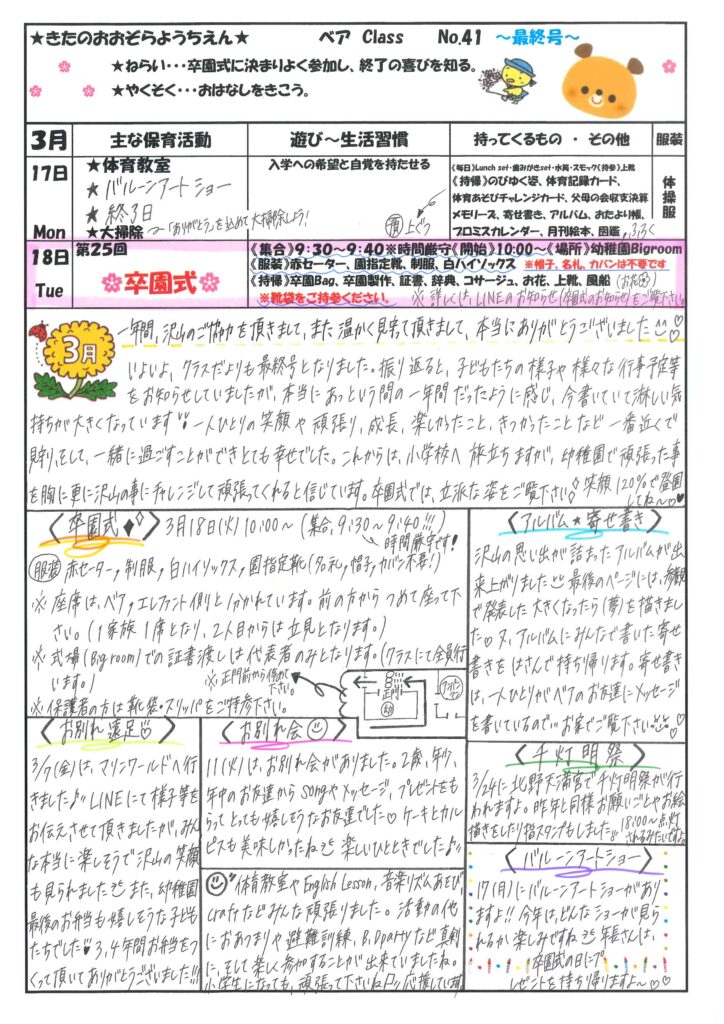 ★きたのおおぞらようちえん★ ベア Class No.41 ～最終号～
★ねらい・・・卒園式に決まりよく参加し、終了の喜びを知る。
★やくそく・・・おはなしをきこう。
3月 主な保育活動 遊び～生活習慣 持ってくるもの ・ その他 服装
17日 Mon
★体育教室
★バルーンアートショー
★終了日
★大掃除 →「ありがとう」を込めて大掃除しよう!
入学への希望と自覚を持たせる
上ぐつ
《毎日》Lunch set・歯みがきset・水筒・スモック《持参》上靴
《持帰》のびゆく姿、体育記録カード、
体育あそびチャレンジカード、父母の会収支決算
メモリーズ、寄せ書き、アルバム、おたより帳、
プロミスカレンダー、月刊絵本、図鑑
体操服
18日 Tue
第25回
卒園式
《集合》9:30～9:40※時間厳守《開始》10:00～《場所》幼稚園Bigroom
《服装》赤セーター、園指定靴、制服、白ハイソックス ※帽子、名札、カバンは不要です
《持帰》卒園Bag、卒園製作、証書、辞典、コサージュ、お花、上靴、風船
※靴袋をご持参ください。
※詳しくは、LINEのお知らせ(卒園式のお知らせ)をご覧下さい
3月
一年間、沢山のご協力を頂きまして、また温かく見守て頂きまして、本当にありがとうございました♡
いよいよ、クラスだよりも最終号となりました。振り返ると、子どもたちの様子や様々な行事予定等
をお知らせしていましたが、本当にあっという間の一年間だったように感じ、今書いていて淋しい気
持ちが大きくなっています!! 一人ひとりの笑顔や頑張り、成長、楽しかったこと、きつかったことなど一番近くで
見守り、そして、一緒に過ごすことができとても幸せでした。これからは、小学校へ旅立ちますが、幼稚園で頑張った事
を胸に更に沢山の事にチャレンジして頑張ってくれると信じています。卒園式では、立派な姿をご覧下さい。笑顔120%で登園
してね～♡♥
〈卒園式〉 3月18日(火)10:00～(集合、9:30～9:40!!!)
時間厳守です!
服装 赤セーター,制服,白ハイソックス,園指定靴(名札,帽子,カバン不要!)
※座席は、ベア,エレファント側と分かれています。前の方からつめて座って下
さい。(1家族1席となり、2人目からは立見となります。)
※式場(Bigroom)での証書渡しは代表者のみとなります。(クラスにて全員行
います。)
※正門前から
下さい。
正門
幼
※保護者の方は靴袋・スリッパをご持参下さい。
〈アルバム★寄せ書き〉
沢山の思い出が詰まったアルバムが出
来上がりました 最後のページには、参観
で発表した大きくなったら(夢)を描きまし
た♡又、アルバムにみんなで書いた寄せ
書きをはさんで持ち帰ります。寄せ書き
は、一人ひとりがベアのお友達にメッセージ
を書いているので…お家でご覧下さい♡
〈お別れ遠足〉
3/7(金)は、マリンワールドへ行
きました♪LINEにて様子等を
お伝えさせて頂きましたが、みん
な本当に楽しそうで沢山の笑顔
も見られました また、幼稚園
最後のお弁当も嬉しそうな子ども
たちでした♥3,4年間お弁当をつ
くって頂いてありがとうございました!!!
〈お別れ会〉
11(火)は、お別れ会がありました。2歳、年少,
年中のお友達からSongやメッセージ、プレゼントをも
らってとっても嬉しそうなお友達でした♡ケーキとカル
ピスも美味しかったね 楽しいひとときでした♪
体育教室やEnglish Lesson,音楽リズムあそび,
Craftなどみんな頑張りました。活動の他
におあつまりや避難訓練、B.Dpartyなど真剣
に、そして楽しく参加することが出来ていましたね。
小学生になっても、頑張って下さいね 応援しています
〈千灯明祭〉
3/24に北野天満宮で千灯明祭が行
われますよ。昨年と同様お願いごとやお絵
描きをしたり指スタンプもしました
18:00～点灯
されるみたいですよ
〈バルーンアートショー〉
17(月)にバルーンアートショーがあり
ますよ!! 今年は、どんなショーが見ら
れるか楽しみですね 年長さんは、
卒園式の日にプ
レゼントを持ち帰りますよ～♡